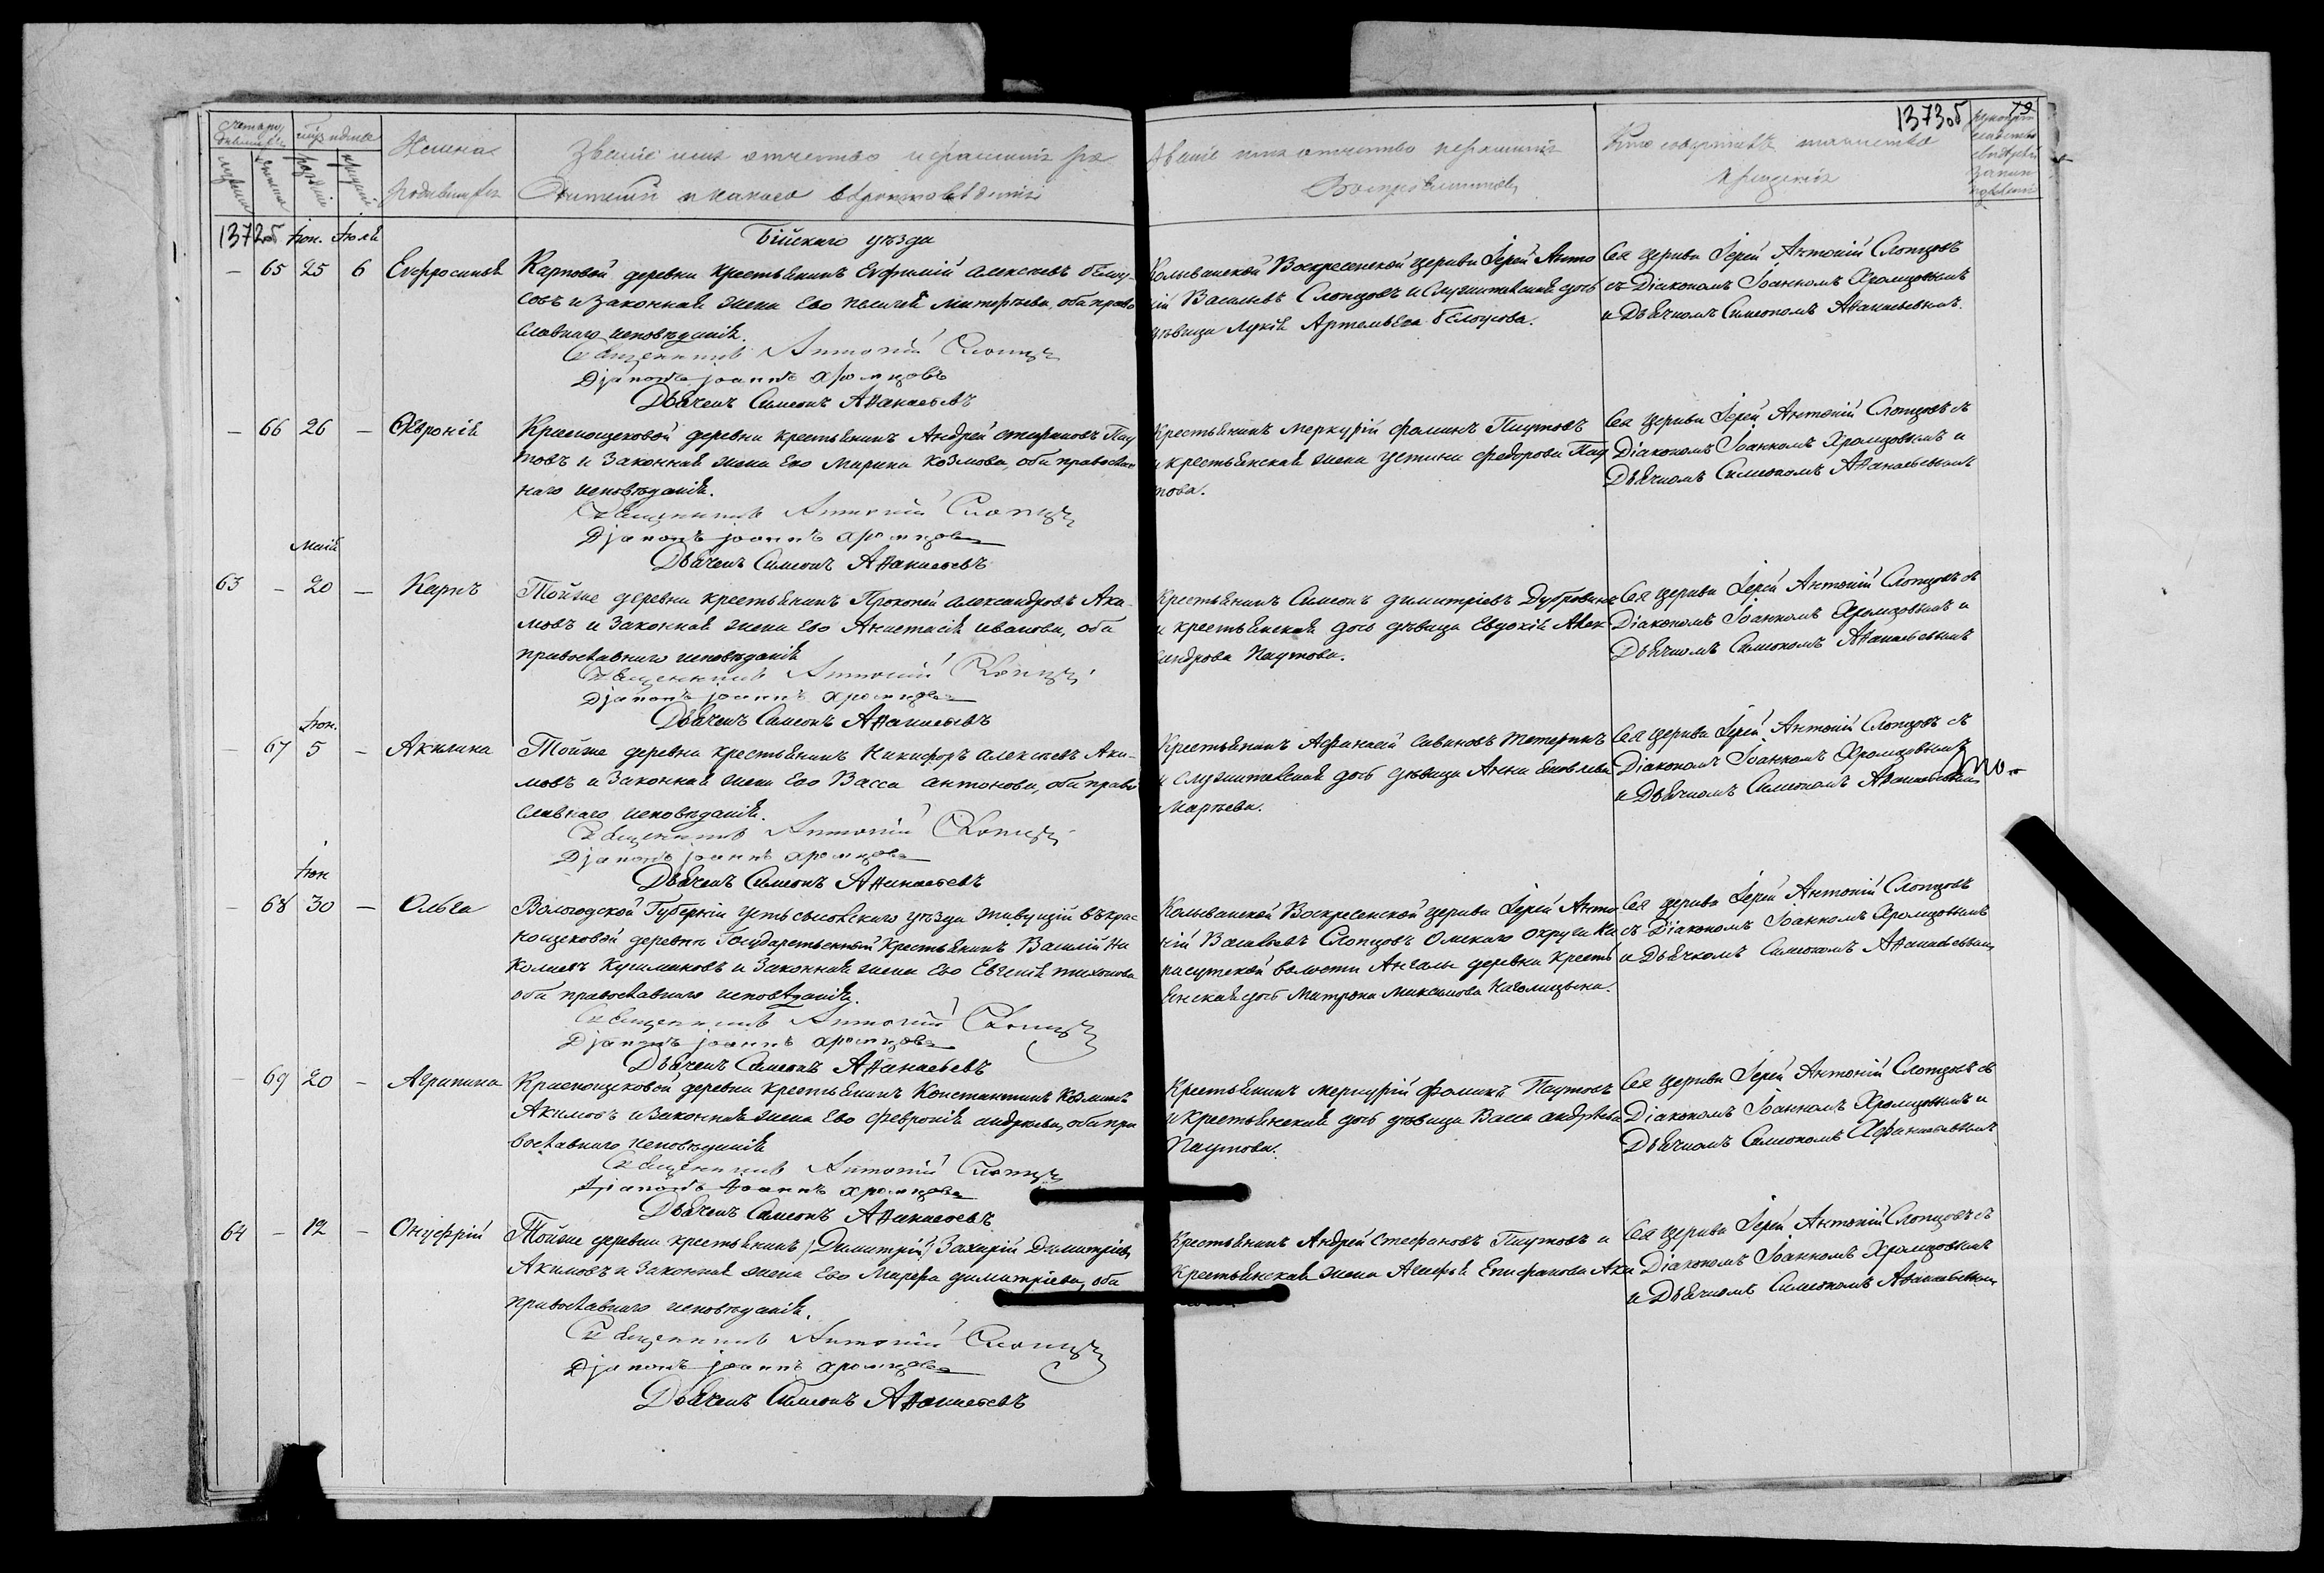 1373об 79
Счетъ родившихся Мѣсяцъ и день
Имена
родившихся
Званіе имя отчество и фамилія ро
дителей и какого вѣроисповѣданія
Званіе имя отчество и фамилія
Воспріемниковъ
Кто совершалъ таинство
крещенія
1372об Іюн. Іюля
Бійскаго уѣзда
— 65 25 6 Евфросинія
Карповой деревни крестьянинъ Евфимій Алексѣевъ Бѣлоу-
совъ и законная жена Его Пелагія Митерьева, оба право
славнаго исповѣданія.
Священникъ Антоній Слопцовъ
Діаконъ Іоаннъ Хромцовъ
Дьячекъ Симеонъ Аѳанасьевъ
Колыванской Воскресенской церкви Іерей Анто
ній Васильевъ Слопцовъ и Служительская дочь
дѣвица Лукія Артемьева Бѣлоусова.
Сея церкви Іерей Антоній Слопцовъ
съ Діакономъ Іоанномъ Хромцовымъ
и Дьячкомъ Симеономъ Аѳанасьевымъ.
— 66 26 — Февронія
Краснощековой деревни крестьянинъ Андрей Стефановъ Пау
товъ и законная жена Его Марина Козмова, оба православ
наго исповѣданія.
Священникъ Антоній Слопцовъ
Діаконъ Іоаннъ Хромцовъ
Дьячекъ Симеонъ Аѳанасьевъ
Крестьянинъ Меркурій Фоминъ Паутовъ
и крестьянская жена Устина Федорова Пау
това.
Сея церкви Іерей Антоній Слопцовъ съ
Діакономъ Іоанномъ Хромцовымъ и
Дьячкомъ Симеономъ Аѳанасьевымъ
Маія
63 — 20 — Карпъ
Тойже деревни крестьянинъ Прокопей Александровъ Аки-
мовъ и законная жена Его Анастасія Иванова, оба
православнаго исповѣданія
Священникъ Антоній Слопцовъ
Діаконъ Іоаннъ Хромцовъ
Дьячекъ Симеонъ Аѳанасьевъ
Крестьянинъ Симеонъ Димитріевъ Дубровинъ
и крестьянская дочь дѣвица Евдокія Алек
сандрова Паутова.
Сея церкви Іерей Антоній Слопцовъ съ
Діакономъ Іоанномъ Хромцовымъ и
Дьячкомъ Симеономъ Аѳанасьевымъ
Іюн.
— 67 5 — Акилина
Тойже деревни крестьянинъ Никифоръ Алексѣевъ Аки-
мовъ и законная жена Его Васса Антонова, оба право
славнаго исповѣданія.
Священникъ Антоній Слопцовъ
Діаконъ Іоаннъ Хромцовъ
Дьячекъ Симеонъ Аѳанасьевъ
Крестьянинъ Афанасій Савиновъ Тетеринъ
и служительская дочь дѣвица Анна Яковлева
Марьева.
Сея церкви Іерей Антоній Слопцовъ съ
Діакономъ Іоанномъ Хромцовымъ
и Дьячкомъ Симеономъ Аѳанасьевымъ
Іюн
— 68 30 — Ольга
Вологодской Губерніи Усть сысольскаго уѣзда живущій въ крас
нощековой деревнѣ Государственный Крестьянинъ Василій Ни
колаевъ Кушмановъ и законная жена Его Евгенія Тихонова
оба православнаго исповѣданія.
Священникъ Антоній Слопцовъ
Діаконъ Іоаннъ Хромцовъ
Дьячекъ Симеонъ Аѳанасьевъ
Колыванской Воскресенской церкви Іерей Анто
ній Васильевъ Слопцовъ Омскаго округа Ка
расутской волости Ангалы деревни Кресть
янская дочь Матрона Максимова Наголицына.
Сея церкви Іерей Антоній Слопцовъ
съ Діакономъ Іоанномъ Хромцовымъ
и Дьячкомъ Симеономъ Аѳанасьевымъ
— 69 20 — Агрипина
Краснощековой деревни крестьянинъ Константинъ Козминъ
Акимовъ и законная жена Его Февронія Андреева, оба пра
вославнаго исповѣданія
Священникъ Антоній Слопцовъ
Діаконъ Іоаннъ Хромцовъ
Дьячекъ Симеонъ Аѳанасьевъ
Крестьянинъ Меркурій Фоминъ Паутовъ
и Крестьянская дочь дѣвица Васса Андрѣева
Паутова.
Сея церкви Іерей Антоній Слопцовъ съ
Діакономъ Іоанномъ Хромцовымъ и
Дьячкомъ Симеономъ Афанасьевымъ
64 — 12 — Онуфрій
Тойже деревни крестьянинъ /Димитрій/ Захарій Димитріевъ
Акимовъ и законная жена Его Марфа Димитріева, оба
православнаго исповѣданія.
Священникъ Антоній Слопцовъ
Діаконъ Іоаннъ Хромцовъ
Дьячекъ Симеонъ Аѳанасьевъ
Крестьянинъ Андрей Стефановъ Паутовъ и
Крестьянская жена Агафья Епифанова Аки
Сея церкви Іерей Антоній Слопцовъ съ
Діакономъ Іоанномъ Хромцовымъ
и Дьячкомъ Симеономъ Аѳанасьевымъ